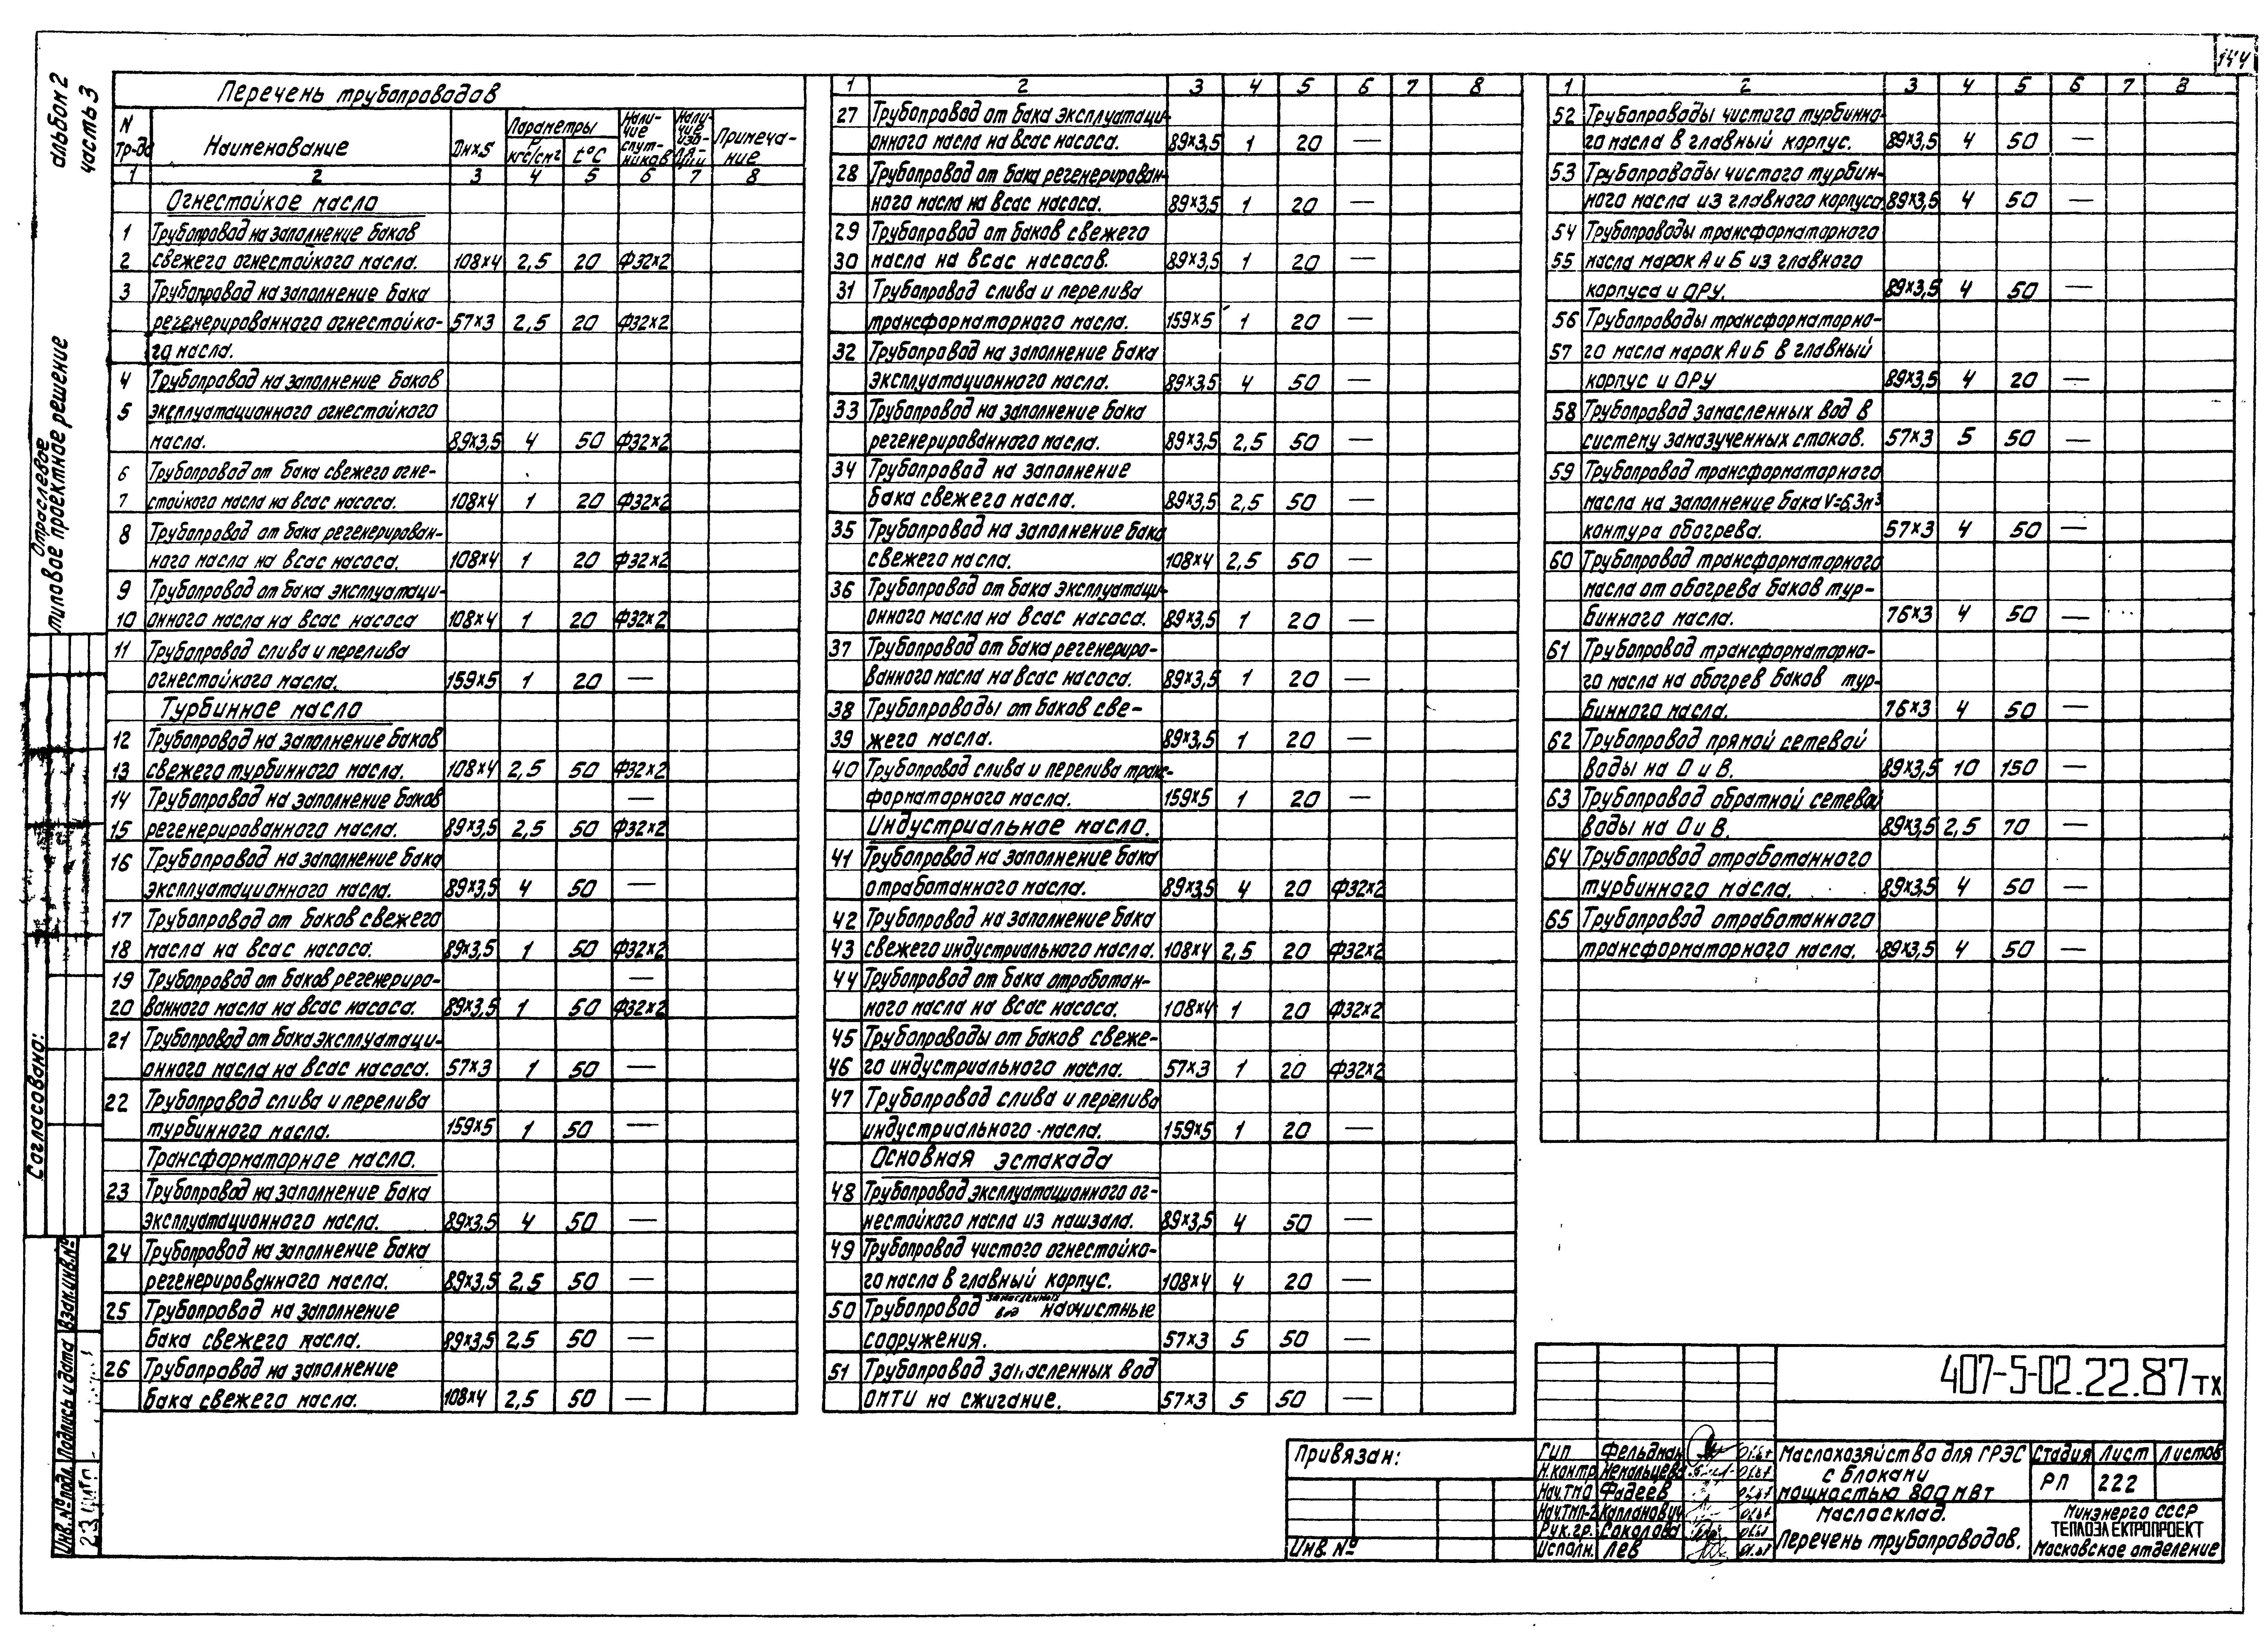 144
альбом 2
часть 3
Отраслевое
типовое проектное решение
Согласовано:
Взам.инв.№
Подпись и дата
Инв.№ подл.
Перечень трубопроводов
N тр-да | Наименование | Dн×S | Параметры P кгс/см² | t°C | Наличие спутников | Наличие изоляции | Примечание
1 2 3 4 5 6 7 8
Огнестойкое масло
1 Трубопровод на заполнение баков
2 свежего огнестойкого масла. 108×4 2,5 20 Ф32×2
3 Трубопровод на заполнение бака
регенерированного огнестойко- 57×3 2,5 20 Ф32×2
го масла.
4 Трубопровод на заполнение баков
5 эксплуатационного огнестойкого
масла. 89×3,5 4 50 Ф32×2
6 Трубопровод от бака свежего огне-
7 стойкого масла на всас насоса. 108×4 1 20 Ф32×2
8 Трубопровод от бака регенерирован-
ного масла на всас насоса. 108×4 1 20 Ф32×2
9 Трубопровод от бака эксплуатаци-
10 онного масла на всас насоса 108×4 1 20 Ф32×2
11 Трубопровод слива и перелива
огнестойкого масла. 159×5 1 20 —
Турбинное масло
12 Трубопровод на заполнение баков
13 свежего турбинного масла. 108×4 2,5 50 Ф32×2
14 Трубопровод на заполнение баков —
15 регенерированного масла. 89×3,5 2,5 50 Ф32×2
16 Трубопровод на заполнение бака
эксплуатационного масла. 89×3,5 4 50 —
17 Трубопровод от баков свежего
18 масла на всас насоса. 89×3,5 1 50 Ф32×2
19 Трубопровод от баков регенериро- —
20 ванного масла на всас насоса. 89×3,5 1 50 Ф32×2
21 Трубопровод от бака эксплуатаци-
онного масла на всас насоса. 57×3 1 50 —
22 Трубопровод слива и перелива
турбинного масла. 159×5 1 50 —
Трансформаторное масло.
23 Трубопровод на заполнение бака
эксплуатационного масла. 89×3,5 4 50 —
24 Трубопровод на заполнение бака
регенерированного масла. 89×3,5 2,5 50 —
25 Трубопровод на заполнение
бака свежего масла. 89×3,5 2,5 50 —
26 Трубопровод на заполнение
бака свежего масла. 108×4 2,5 50 —
1 2 3 4 5 6 7 8
27 Трубопровод от бака эксплуатаци-
онного масла на всас насоса. 89×3,5 1 20 —
28 Трубопровод от бака регенерирован-
ного масла на всас насоса. 89×3,5 1 20 —
29 Трубопровод от баков свежего
30 масла на всас насосов. 89×3,5 1 20 —
31 Трубопровод слива и перелива
трансформаторного масла. 159×5 1 20 —
32 Трубопровод на заполнение бака
эксплуатационного масла. 89×3,5 4 50 —
33 Трубопровод на заполнение бака
регенерированного масла. 89×3,5 2,5 50 —
34 Трубопровод на заполнение
бака свежего масла. 89×3,5 2,5 50 —
35 Трубопровод на заполнение бака
свежего масла. 108×4 2,5 50 —
36 Трубопровод от бака эксплуатаци-
онного масла на всас насоса. 89×3,5 1 20 —
37 Трубопровод от бака регенериро-
ванного масла на всас насоса. 89×3,5 1 20 —
38 Трубопроводы от баков све-
39 жего масла. 89×3,5 1 20 —
40 Трубопровод слива и перелива транс-
форматорного масла. 159×5 1 20 —
Индустриальное масло.
41 Трубопровод на заполнение бака
отработанного масла. 89×3,5 4 20 Ф32×2
42 Трубопровод на заполнение бака
43 свежего индустриального масла. 108×4 2,5 20 Ф32×2
44 Трубопровод от бака отработан-
ного масла на всас насоса. 108×4 1 20 Ф32×2
45 Трубопроводы от баков свеже-
46 го индустриального масла. 57×3 1 20 Ф32×2
47 Трубопровод слива и перелива
индустриального масла. 159×5 1 20 —
Основная эстакада
48 Трубопровод эксплуатационного ог-
нестойкого масла из машзала. 89×3,5 4 50 —
49 Трубопровод чистого огнестойко-
го масла в главный корпус. 108×4 4 20 —
50 Трубопровод замасленных вод на очистные
сооружения. 57×3 5 50 —
51 Трубопровод замасленных вод
ОМТИ на сжигание. 57×3 5 50 —
1 2 3 4 5 6 7 8
52 Трубопроводы чистого турбинно-
го масла в главный корпус. 89×3,5 4 50 —
53 Трубопроводы чистого турбин-
ного масла из главного корпуса 89×3,5 4 50 —
54 Трубопроводы трансформаторного
55 масла марок А и Б из главного
корпуса и ОРУ. 89×3,5 4 50 —
56 Трубопроводы трансформаторно-
57 го масла марок А и Б в главный
корпус и ОРУ 89×3,5 4 20 —
58 Трубопровод замасленных вод в
систему замазученных стоков. 57×3 5 50 —
59 Трубопровод трансформаторного
масла на заполнение бака V=6,3м³
контура обогрева. 57×3 4 50 —
60 Трубопровод трансформаторного
масла от обогрева баков тур-
бинного масла. 76×3 4 50 —
61 Трубопровод трансформаторно-
го масла на обогрев баков тур-
бинного масла. 76×3 4 50 —
62 Трубопровод прямой сетевой
воды на О и В. 89×3,5 10 150 —
63 Трубопровод обратной сетевой
воды на О и В. 89×3,5 2,5 70 —
64 Трубопровод отработанного
турбинного масла. 89×3,5 4 50 —
65 Трубопровод отработанного
трансформаторного масла. 89×3,5 4 50 —
407-5-02.22.87 ТХ
Привязан:
Инв. №
ГИП Фельдман
Н.контр. Немальцева
Нач.ТМО Фадеев
Нач.ТМП-2 Капланович
Рук.гр. Соколова
Исполн. Лев
Маслохозяйство для ГРЭС
с блоками
мощностью 800 МВт
Стадия Лист Листов
РП 222
Маслосклад.
Перечень трубопроводов.
Минэнерго СССР
ТЕПЛОЭЛЕКТРОПРОЕКТ
Московское отделение